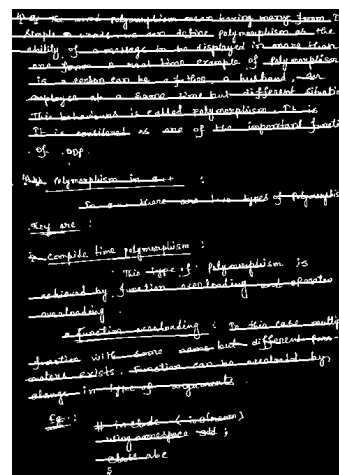 The word polymorphism mean having many form. I
simple words, we can define polymorphism as the
ability of a message to be displayed in more than
one form. A real time example of polymorphism
is a person can be a father, a husband,
employee at a same time but different situatio
This behaviour is called polymorphism. It is
It is considered as one of the important function
of OOP.
Polymorphism in C++ :
there are two types of Polymorphis
They are :
compile time polymorphism :
This type of Polymorphism is
achieved by function overloading and operator
overloading.
Function overloading : In this case multip
function with same name but different para-
meters exists. Function can be overloaded by
change in type of arguments.
Eg. :
# include < iostream>
using namespace std ;
class abc